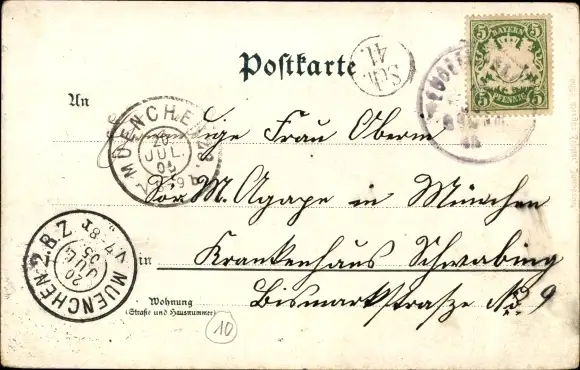 5 BAYERN 5
5 PFENNIG 5
Postkarte
Sch.
41.
An
MUENCHEN
20
JUL.
Frau Oberin
M. Agape in München
MUENCHEN 2.B.Z
20
JUL
05
V 7-8
in Krankenhaus Schwabing
Wohnung
(Straße und Hausnummer)
Bismarkstraße No 9
10